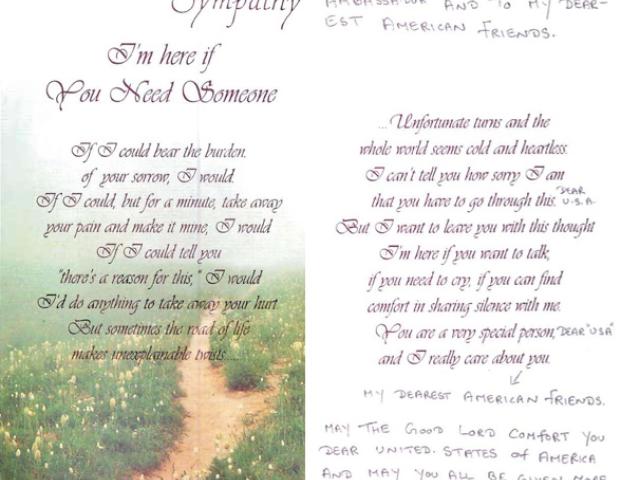 Sympathy
I'm here if
You Need Someone
If I could bear the burden.
of your sorrow, I would.
If I could, but for a minute, take away
your pain and make it mine, I would
If I could tell you
"there's a reason for this," I would
I'd do anything to take away your hurt.
But sometimes the road of life
makes unexplainable twists....
AMBASSADOR AND TO MY DEAR-
EST AMERICAN FRIENDS.
...Unfortunate turns and the
whole world seems cold and heartless.
I can't tell you how sorry I am
that you have to go through this. DEAR U.S.A.
But I want to leave you with this thought
I'm here if you want to talk,
if you need to cry, if you can find
comfort in sharing silence with me.
You are a very special person, DEAR "USA"
and I really care about you.
MY DEAREST AMERICAN FRIENDS.
MAY THE GOOD LORD COMFORT YOU
DEAR UNITED. STATES OF AMERICA
AND MAY YOU ALL BE GIVEN MORE